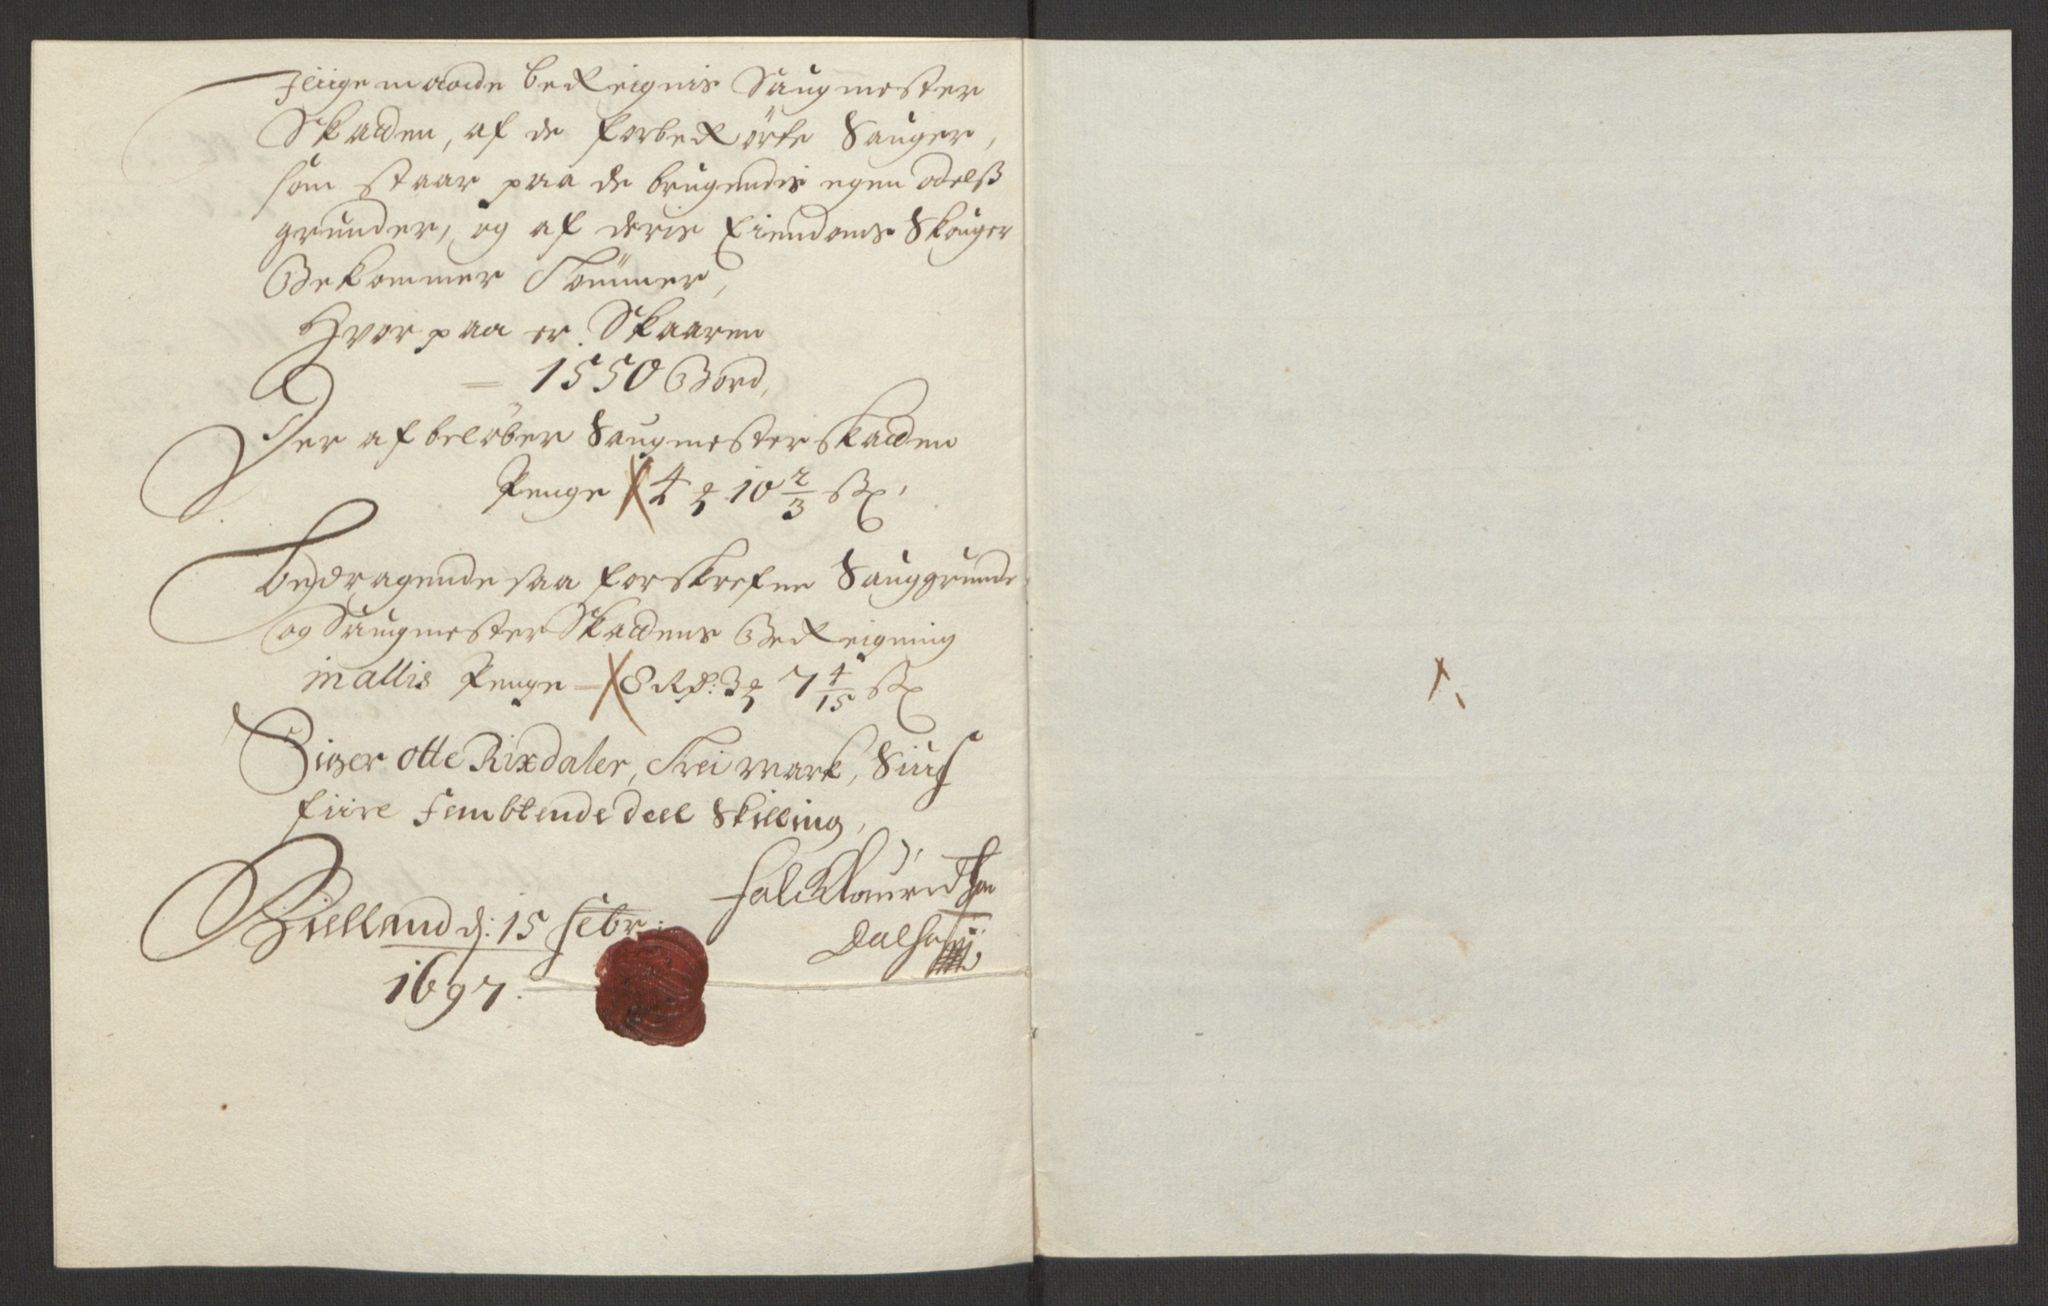 Jliigemaade beReignis Saugmester
Skatten, af de forbeRörte Sauger,
som staar paa de brugendis egen odelsß
grunder, og af deris Eiendoms Skouger
Bekommer Tömmer,
Hvorpaa er Skaaren
1550 Bord,
Der af beløber Saugmesterskatten
Penge 4 ꝝ 10 2/3 ß,
bedragende saa forskrefne Sauggrunde
og Saugmester Skattens BeReigning
in allis Penge - 8 Rd: 3 ꝝ 7 4/15 ß
Siger otte Rixdaler, Trei mark, Siuf
fiire fembtende deel Skilling,
Bielland d: 15 febr:
1697.
Falck Lauridtsen